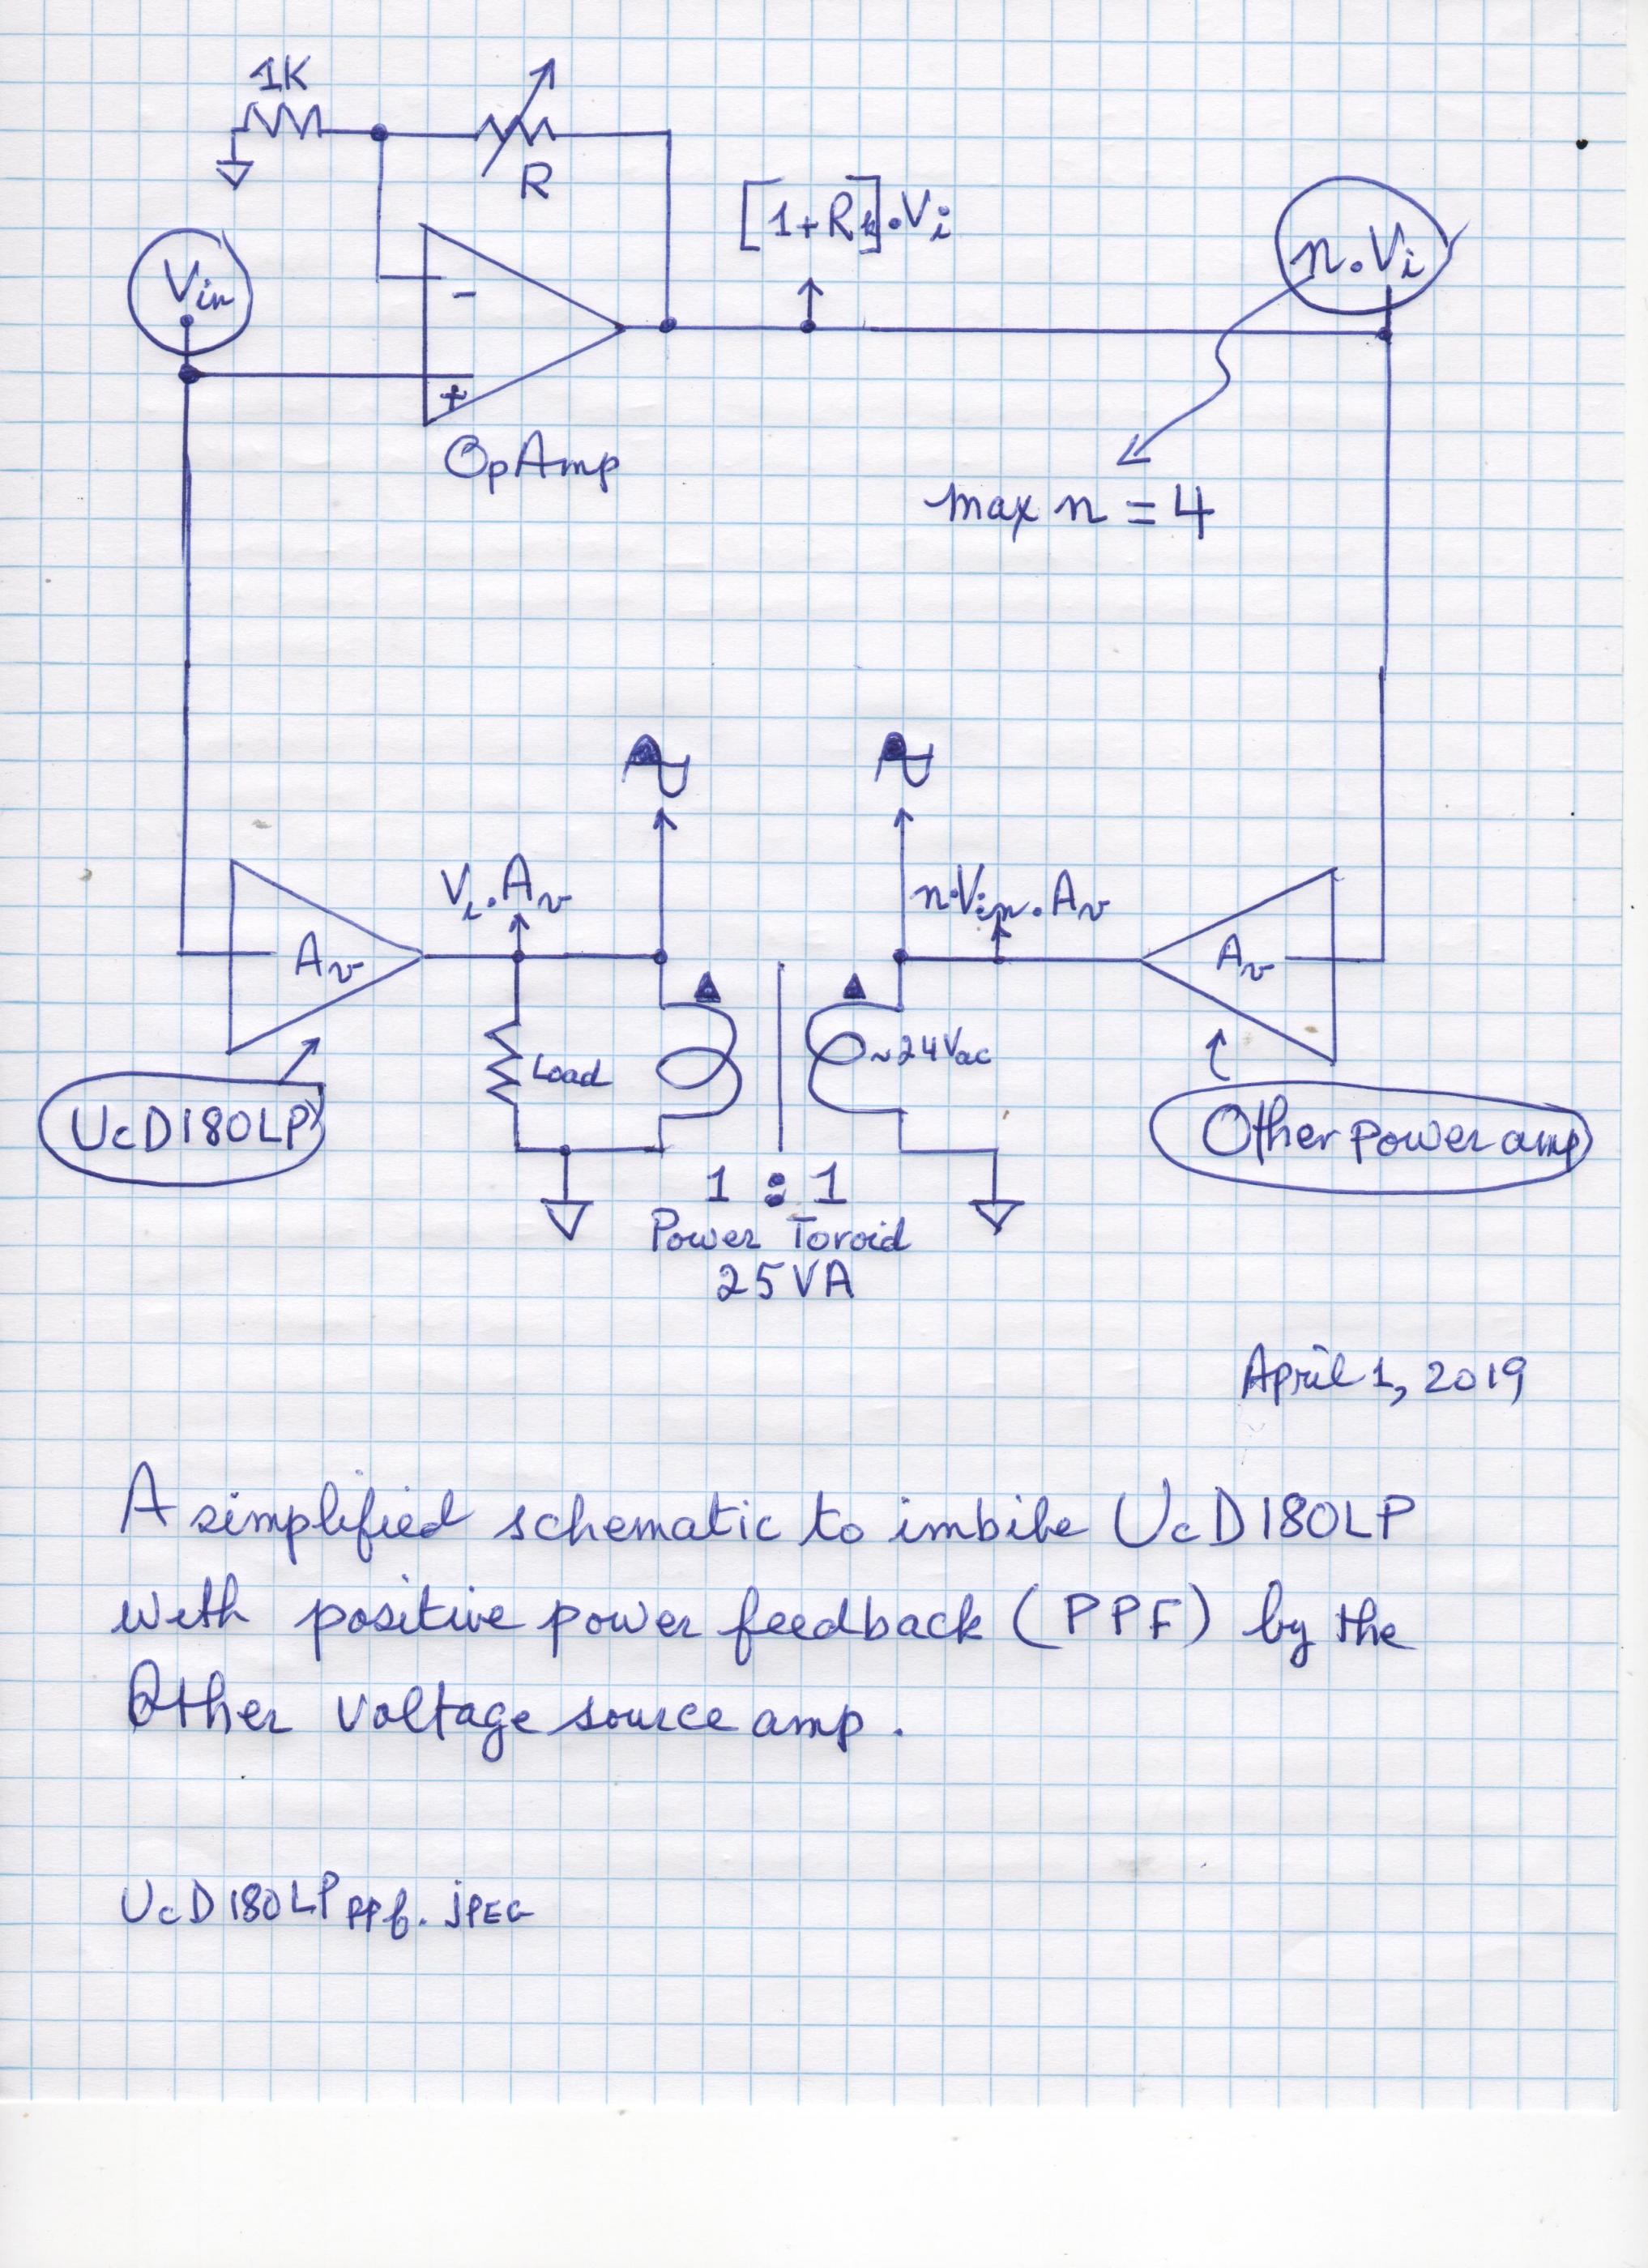 1K
R
[1+Rk].Vi
n.Vi
Vin
-
+
OpAmp
max n = 4
Vi.Av
n.Vin.Av
Av
Av
Load
~24Vac
UcD180LP
Other power amp
1 : 1
Power Toroid
25VA
April 1, 2019
A simplified schematic to imbibe UcD180LP
with positive power feedback (PPF) by the
Other voltage source amp.
UcD180LPppf.jPEG